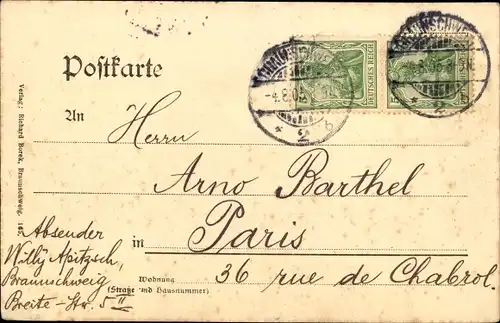 Postkarte
BRAUNSCHWEIG
-4.8.0
* 2 b
DEUTSCHES REICH
BRAUNSCHWEIG
* 2 b
An
Herrn
Arno Barthel
in Paris
Wohnung 36 rue de Chabrol.
(Straße und Hausnummer)
Absender
Willy Apitzsch,
Braunschweig
Breite-Str. 5 II
Verlag: Richard Borek, Braunschweig.